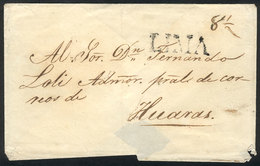 8 rl
LIMA
Al Sor. Dn. Fernando
Loli Admor. pral de cor
reos de
Huaras.